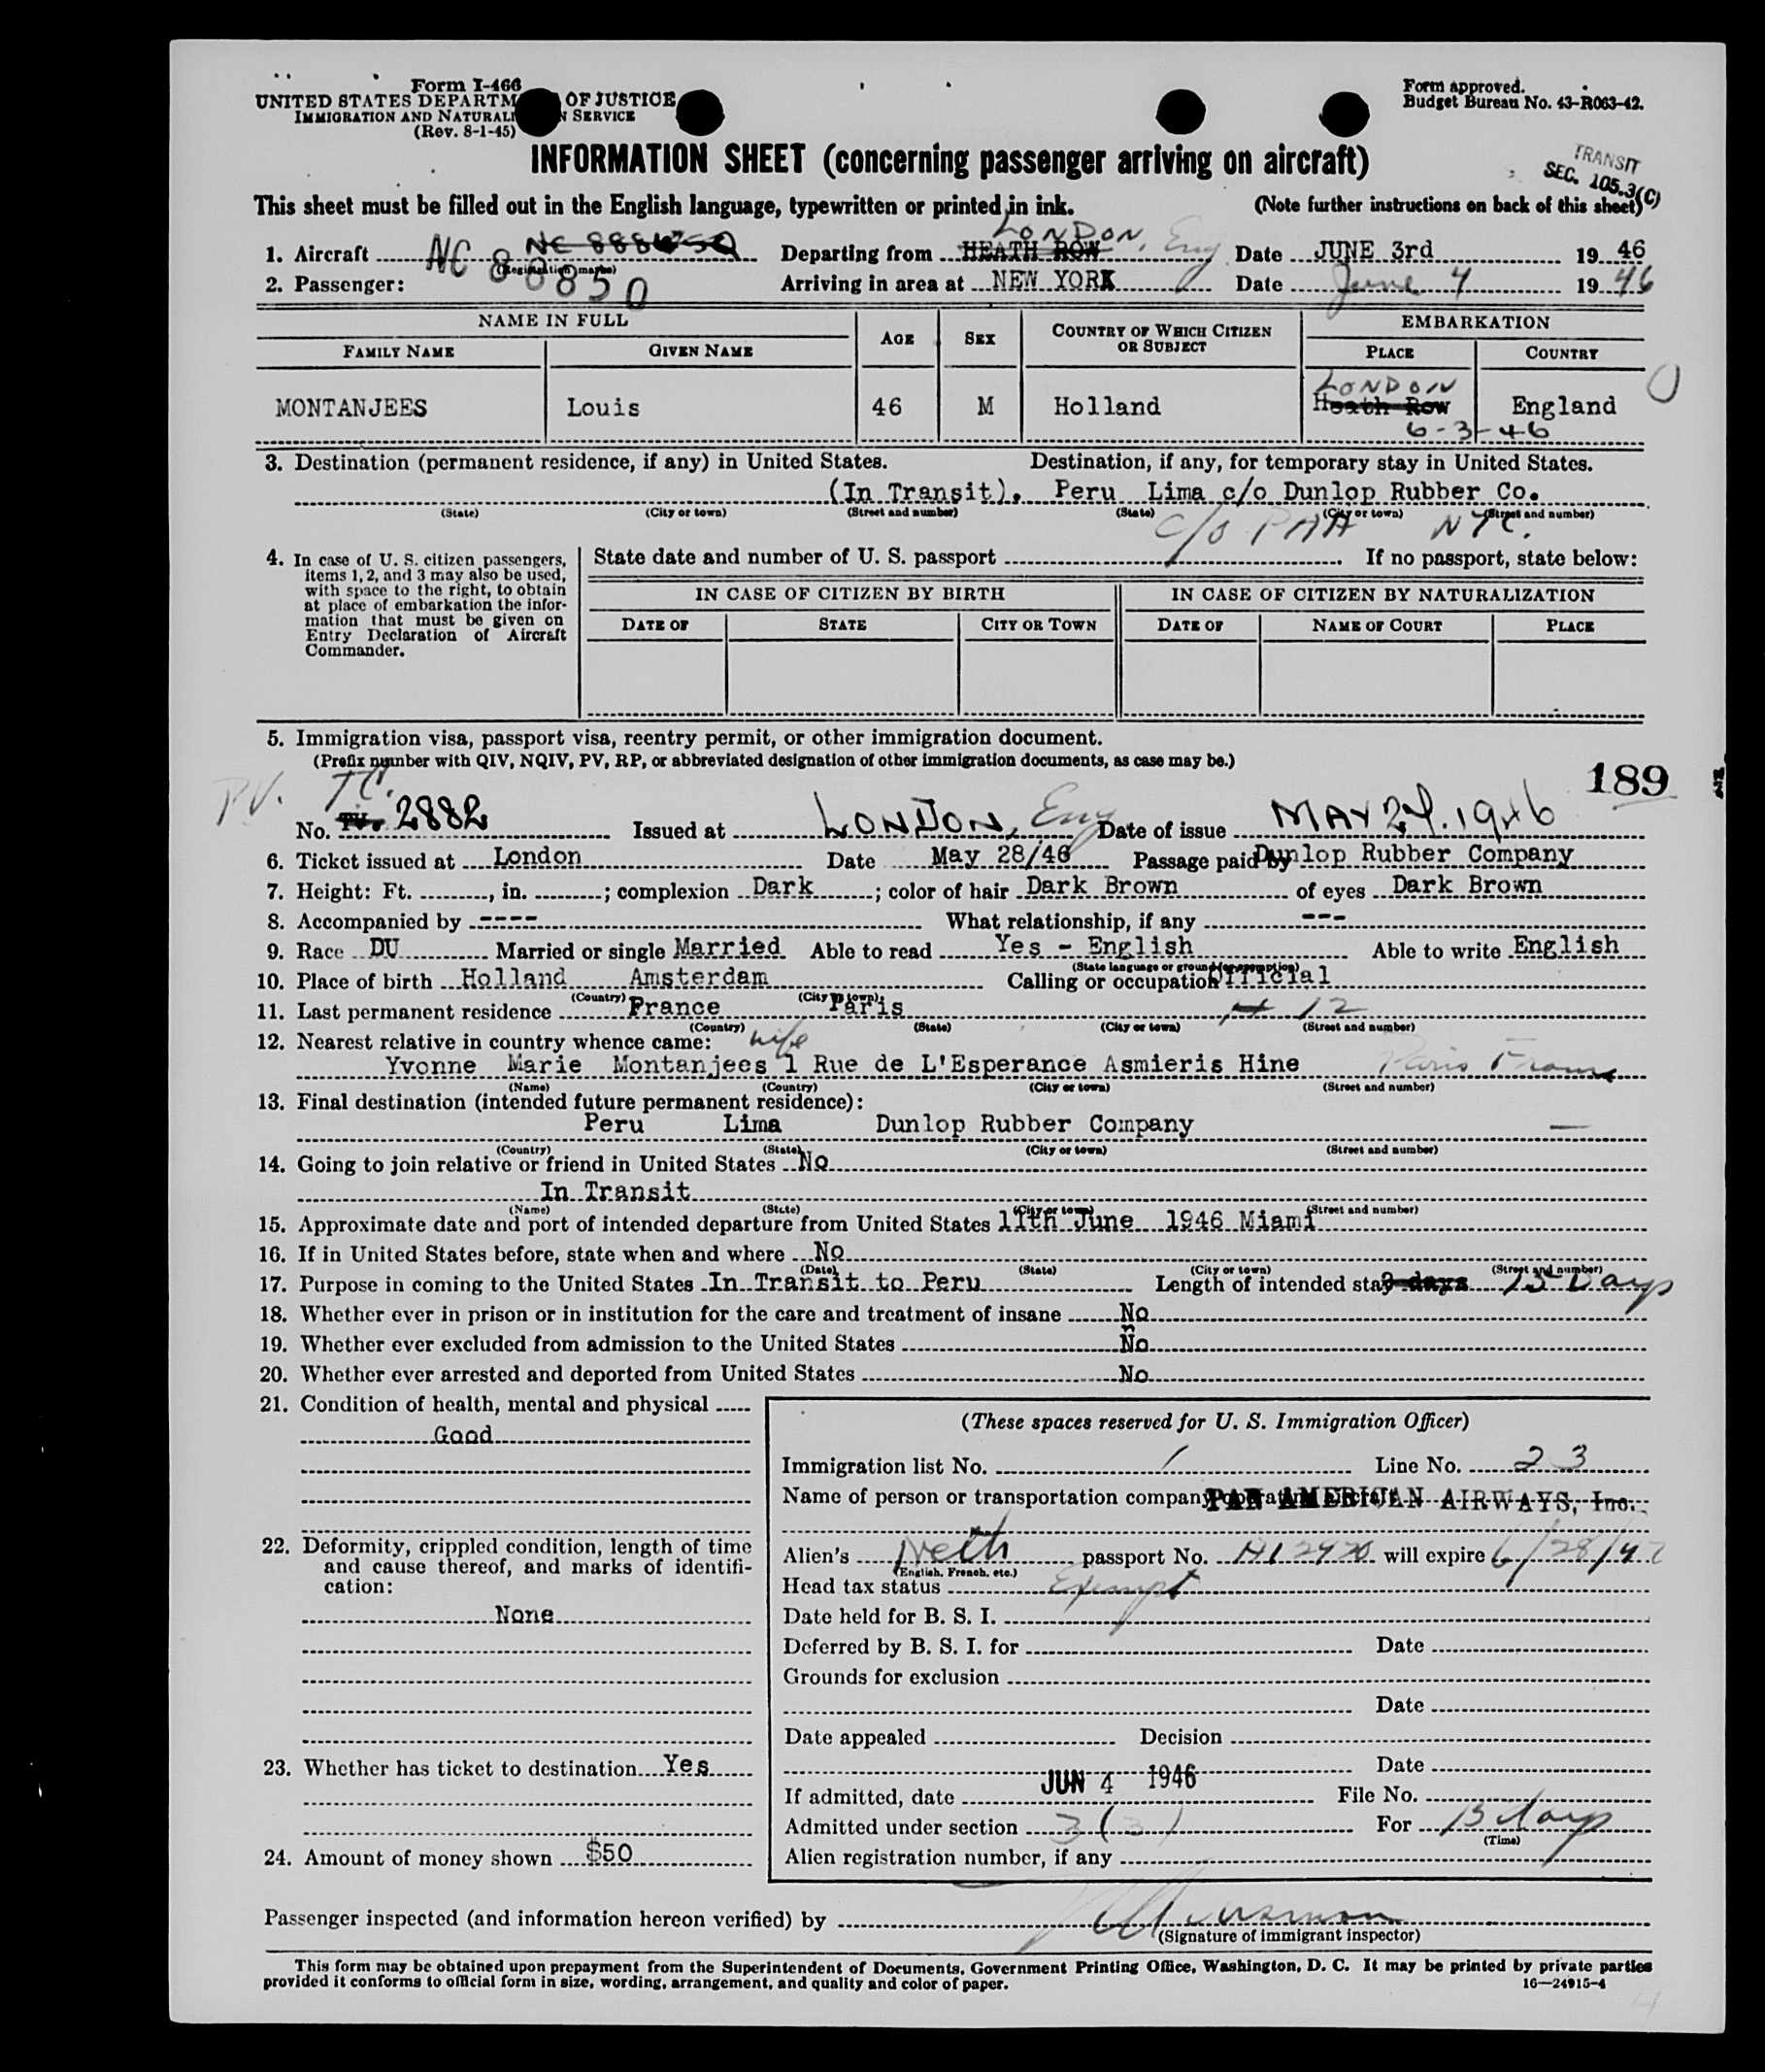 Form I-466
UNITED STATES DEPARTM OF JUSTICE
IMMIGRATION AND NATURALI N SERVICE
(Rev. 8-1-45)
Form approved.
Budget Bureau No. 43-R063-42.
INFORMATION SHEET (concerning passenger arriving on aircraft)
TRANSIT
SEC. 105.3(C)
This sheet must be filled out in the English language, typewritten or printed in ink. (Note further instructions on back of this sheet)
LONDON, Eng
1. Aircraft NC 88850 Departing from HEATH ROW Date JUNE 3rd 19 46
(Registration marks)
2. Passenger: Arriving in area at NEW YORK Date June 4 19 46
NAME IN FULL AGE SEX COUNTRY OF WHICH CITIZEN OR SUBJECT EMBARKATION
FAMILY NAME GIVEN NAME PLACE COUNTRY
LONDON
MONTANJEES Louis 46 M Holland Heath Row England
6-3-46
3. Destination (permanent residence, if any) in United States. Destination, if any, for temporary stay in United States.
(In Transit). Peru Lima c/o Dunlop Rubber Co.
(State) (City or town) (Street and number) (State) (City or town) (Street and number)
c/o PAA NYC.
4. In case of U. S. citizen passengers, items 1, 2, and 3 may also be used, with space to the right, to obtain at place of embarkation the information that must be given on Entry Declaration of Aircraft Commander.
State date and number of U. S. passport If no passport, state below:
IN CASE OF CITIZEN BY BIRTH IN CASE OF CITIZEN BY NATURALIZATION
DATE OF STATE CITY OR TOWN DATE OF NAME OF COURT PLACE
5. Immigration visa, passport visa, reentry permit, or other immigration document.
(Prefix number with QIV, NQIV, PV, RP, or abbreviated designation of other immigration documents, as case may be.)
189
PV. TC.
No. PV. 2882 Issued at LONDON, Eng Date of issue MAY 24. 1946
6. Ticket issued at London Date May 28/46 Passage paid by Dunlop Rubber Company
7. Height: Ft. , in. ; complexion Dark ; color of hair Dark Brown of eyes Dark Brown
8. Accompanied by ---- What relationship, if any ---
9. Race DU Married or single Married Able to read Yes - English Able to write English
(State language or ground for exemption)
10. Place of birth Holland Amsterdam Calling or occupation Official
(Country) (City or town)
11. Last permanent residence France Paris 12
(Country) (State) (City or town) (Street and number)
12. Nearest relative in country whence came: wife
Yvonne Marie Montanjees 1 Rue de L'Esperance Asmieris Hine Paris France
(Name) (Country) (City or town) (Street and number)
13. Final destination (intended future permanent residence):
Peru Lima Dunlop Rubber Company
(Country) (State) (City or town) (Street and number)
14. Going to join relative or friend in United States No
In Transit
(Name) (State) (City or town) (Street and number)
15. Approximate date and port of intended departure from United States 11th June 1946 Miami
16. If in United States before, state when and where No
(Date) (State) (City or town) (Street and number)
17. Purpose in coming to the United States In Transit to Peru Length of intended stay 3 days 15 Days
18. Whether ever in prison or in institution for the care and treatment of insane No
19. Whether ever excluded from admission to the United States No
20. Whether ever arrested and deported from United States No
21. Condition of health, mental and physical
Good
22. Deformity, crippled condition, length of time and cause thereof, and marks of identification:
None
23. Whether has ticket to destination Yes
24. Amount of money shown $50
(These spaces reserved for U. S. Immigration Officer)
Immigration list No. 1 Line No. 23
Name of person or transportation company operating aircraft PAN AMERICAN AIRWAYS, Inc.
Alien's Neth passport No. will expire 6/28/47
(English, French, etc.)
Head tax status Exempt
Date held for B. S. I.
Deferred by B. S. I. for Date
Grounds for exclusion
Date
Date appealed Decision
Date
If admitted, date JUN 4 1946 File No.
Admitted under section 3 (3) For 15 days
(Time)
Alien registration number, if any
Passenger inspected (and information hereon verified) by
(Signature of immigrant inspector)
This form may be obtained upon prepayment from the Superintendent of Documents, Government Printing Office, Washington, D. C. It may be printed by private parties
provided it conforms to official form in size, wording, arrangement, and quality and color of paper. 16—24915-4